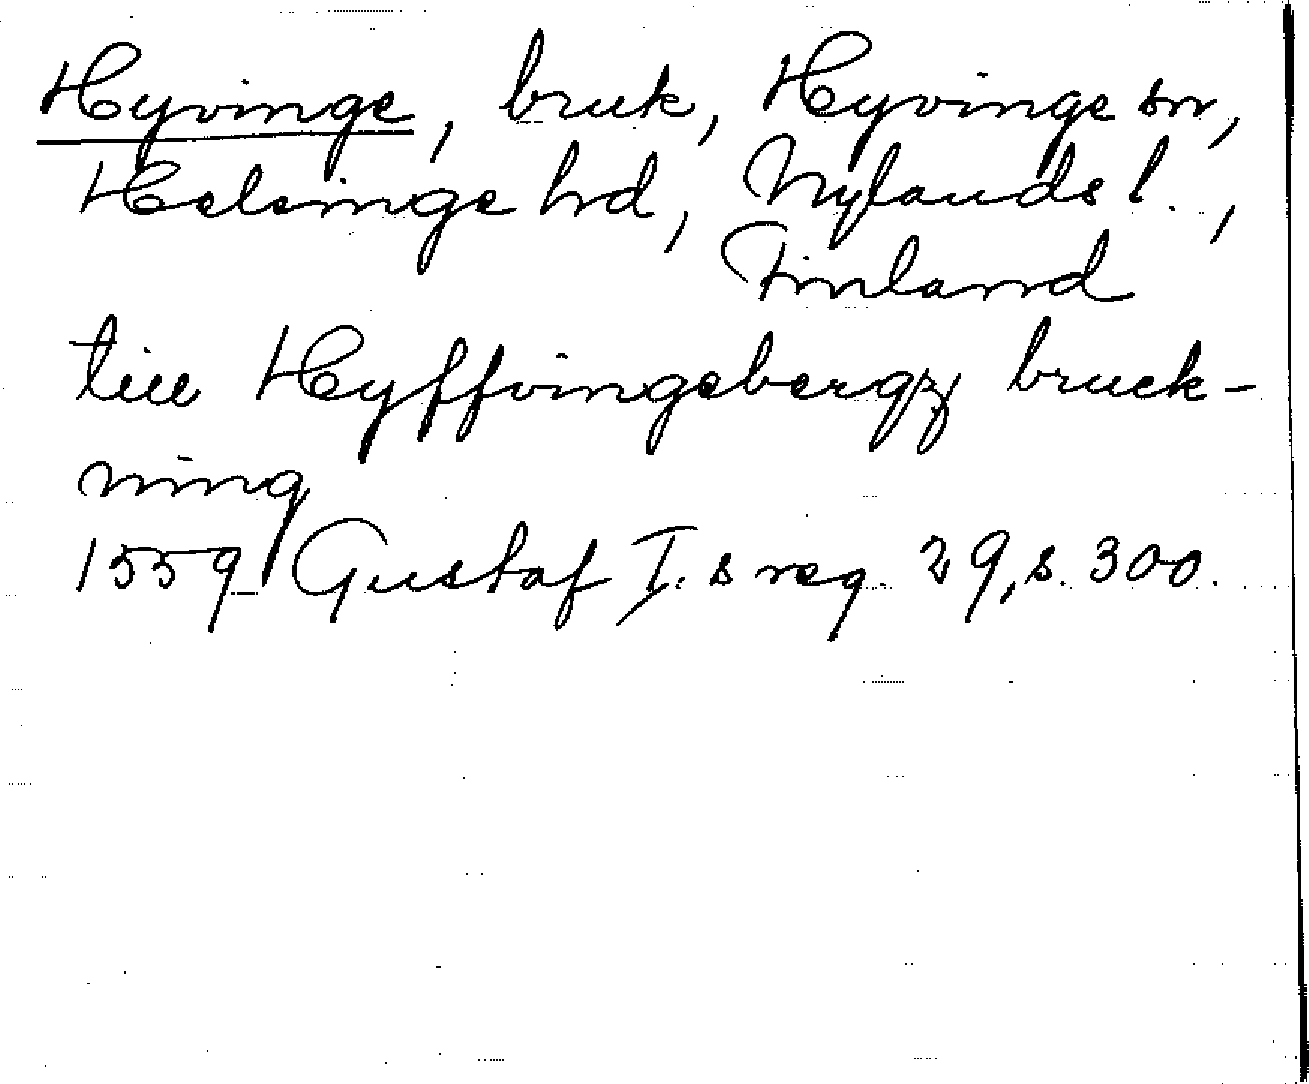 Hyvinge, bruk, Hyvinge sn,
Helsinge hd, Nylands l.,
Finland
till Hyffvingebergz bruck-
ning
1559 Gustaf I:s reg. 29, s. 300.